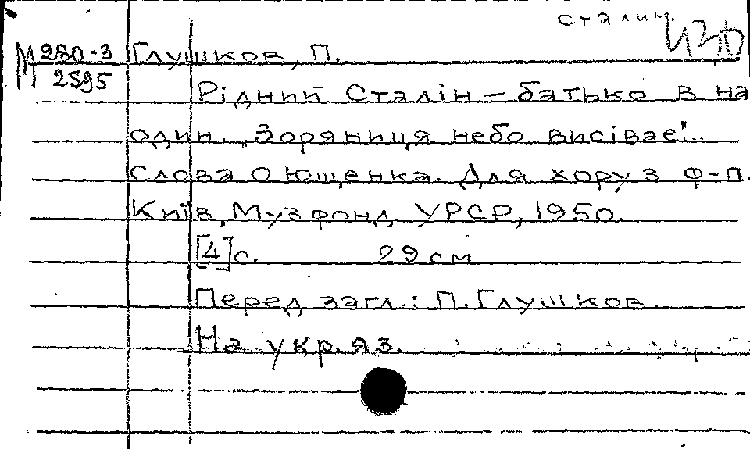 Сталин
М 280-3
2595
Глушков, П.
Рідний Сталін — батько в нас
один. "Зоряниця небо висіває"...
Слова О Ющенка. Для хору з ф-п.
Київ, Музфонд УРСР, 1950.
[4] с. 29 см
Перед загл.: П. Глушков.
На укр. яз.